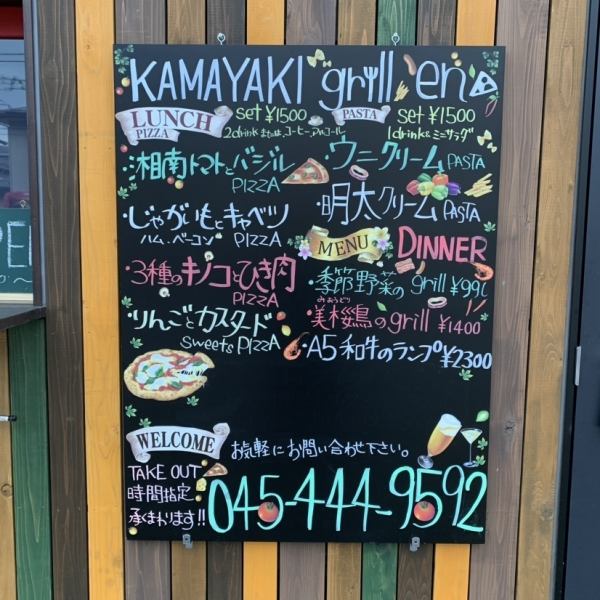 KAMAYAKI grill en
LUNCH
PIZZA
set ¥1500
2drink または、コーヒー、アルコール
・湘南トマトとバジル
PIZZA
・じゃがいもとキャベツ
ハム、ベーコン PIZZA
・3種のキノコとひき肉
PIZZA
・りんごとカスタード
Sweets PIZZA
PASTA
set ¥1500
1drink & ミニサラダ
・ウニクリーム PASTA
・明太クリーム PASTA
MENU
DINNER
・季節野菜の grill
みおうどり
・美桜鶏の grill ¥1400
・A5和牛のランプ ¥2300
WELCOME
お気軽にお問い合わせ下さい。
TAKE OUT
時間指定
承くまわります!!
045-444-9592